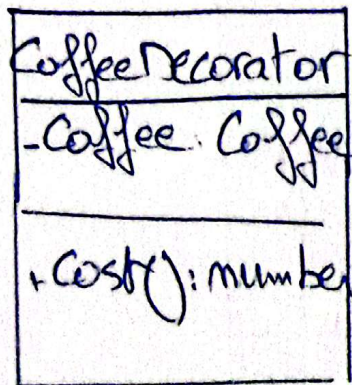 CoffeeDecorator
-Coffee: Coffee
+Cost(): number